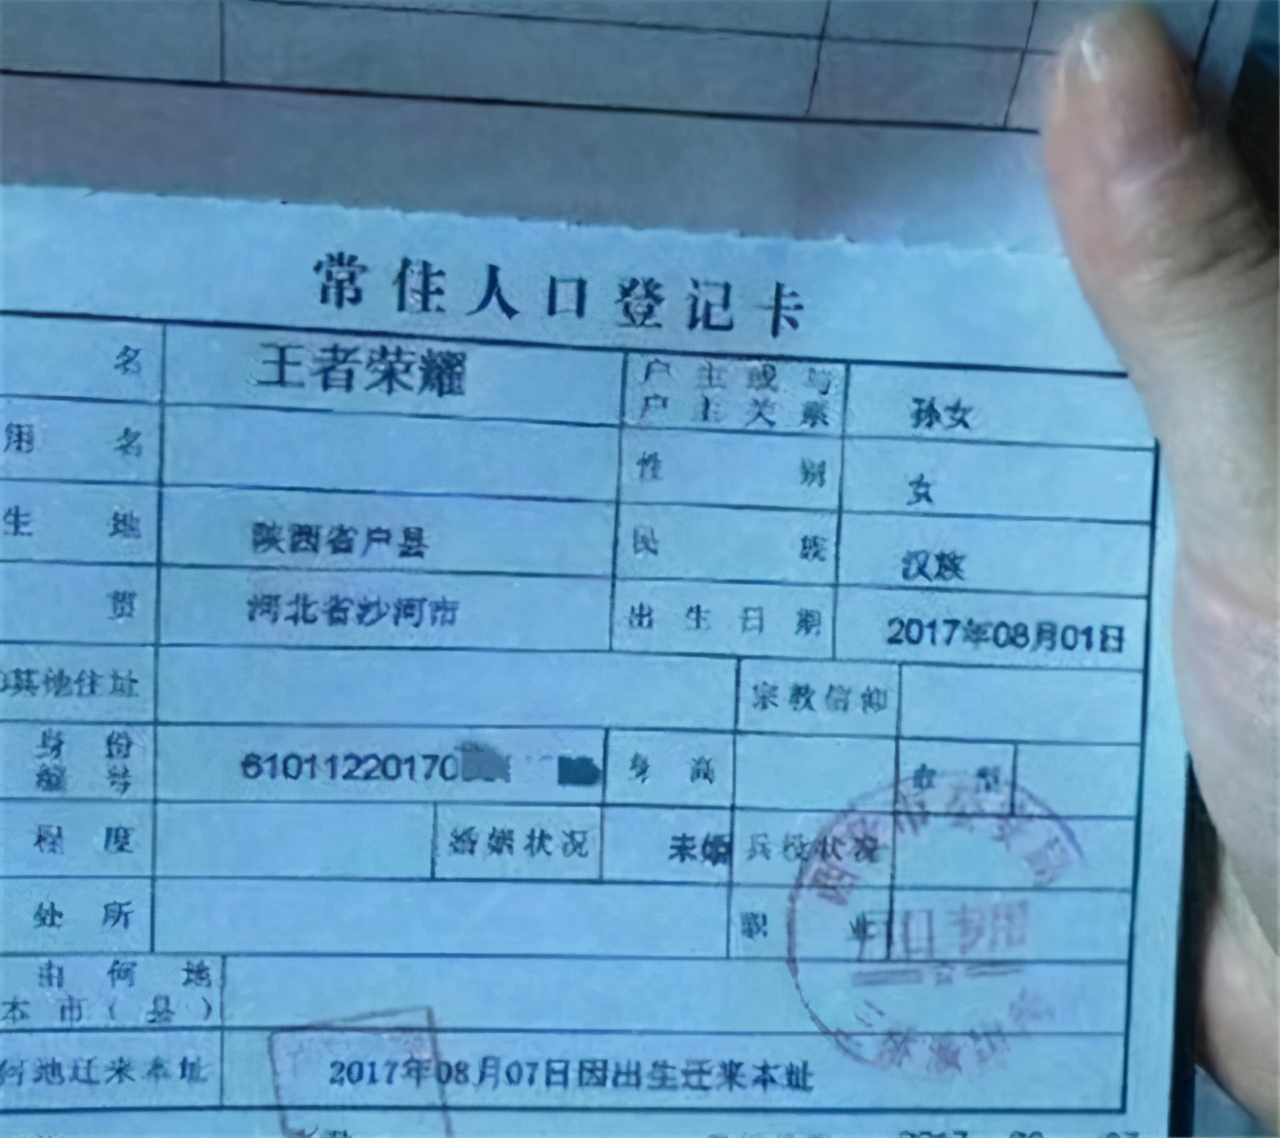 常住人口登记卡
名 王者荣耀 户主或与户主关系 孙女
用名 性别 女
生地 陕西省户县 民族 汉族
贯 河北省沙河市 出生日期 2017年08月01日
其他住址 宗教信仰
身份编号 61011220170 身高 血型
程度 婚姻状况 未婚 兵役状况
处所 职业
西安市公安局
户口专用
由何地
本市(县)
何地迁来本址 2017年08月07日因出生迁来本址